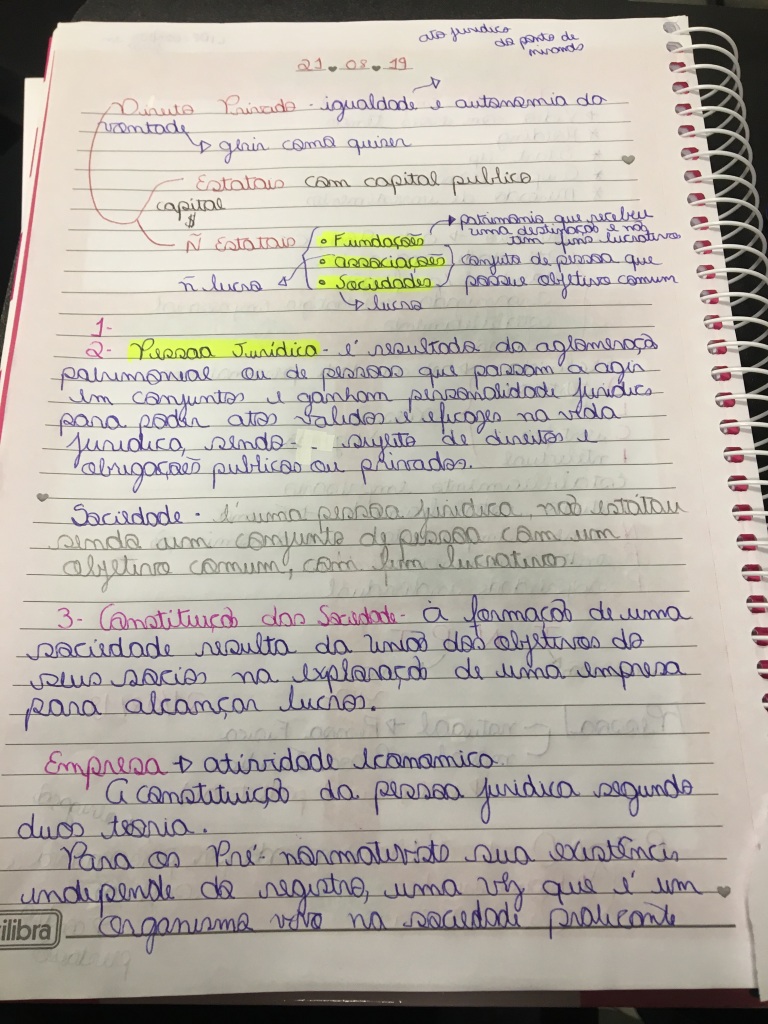 ato jurídico
do ponto de
miranda
21.08.19
Direito Privado - igualdade e autonomia da
vontade → gerir como quiser
Estatais com capital publico
capital
$
Ñ Estatais
• Fundações → patrimonio que recebeu
uma destinação e não
tem fins lucrativos
• associações
ñ lucro
• Sociedades
conjuto de pessoa que
possue objetivo comum
→ lucro
1-
2- Pessoa Jurídica - é resultado da aglomeração
patrimonial ou de pessoas que passam a agir
em conjuntos e ganham personalidade jurídica
para poder atos válidos e eficazes na vida
jurídica, sendo - . sujeito de direitos e
obrigações publicas ou privadas.
Sociedade - é uma pessoa jurídica, não estatau
sendo um conjunto de pessoa com um
objetivo comum, com fim lucrativos.
3- Constituiçõ das Sociedade - à formaçõ de uma
sociedade resulta da união dos objetivos de
seus sócios na exploraçõ de uma empresa
para alcançar lucros.
Empresa → atividade economica
A constituiçõ da pessoa juridica segundo
duas teoria.
Para os Pré-normativista sua existência
independe de registro, uma vez que é um
organismo vivo na sociedade praticante
ilibra